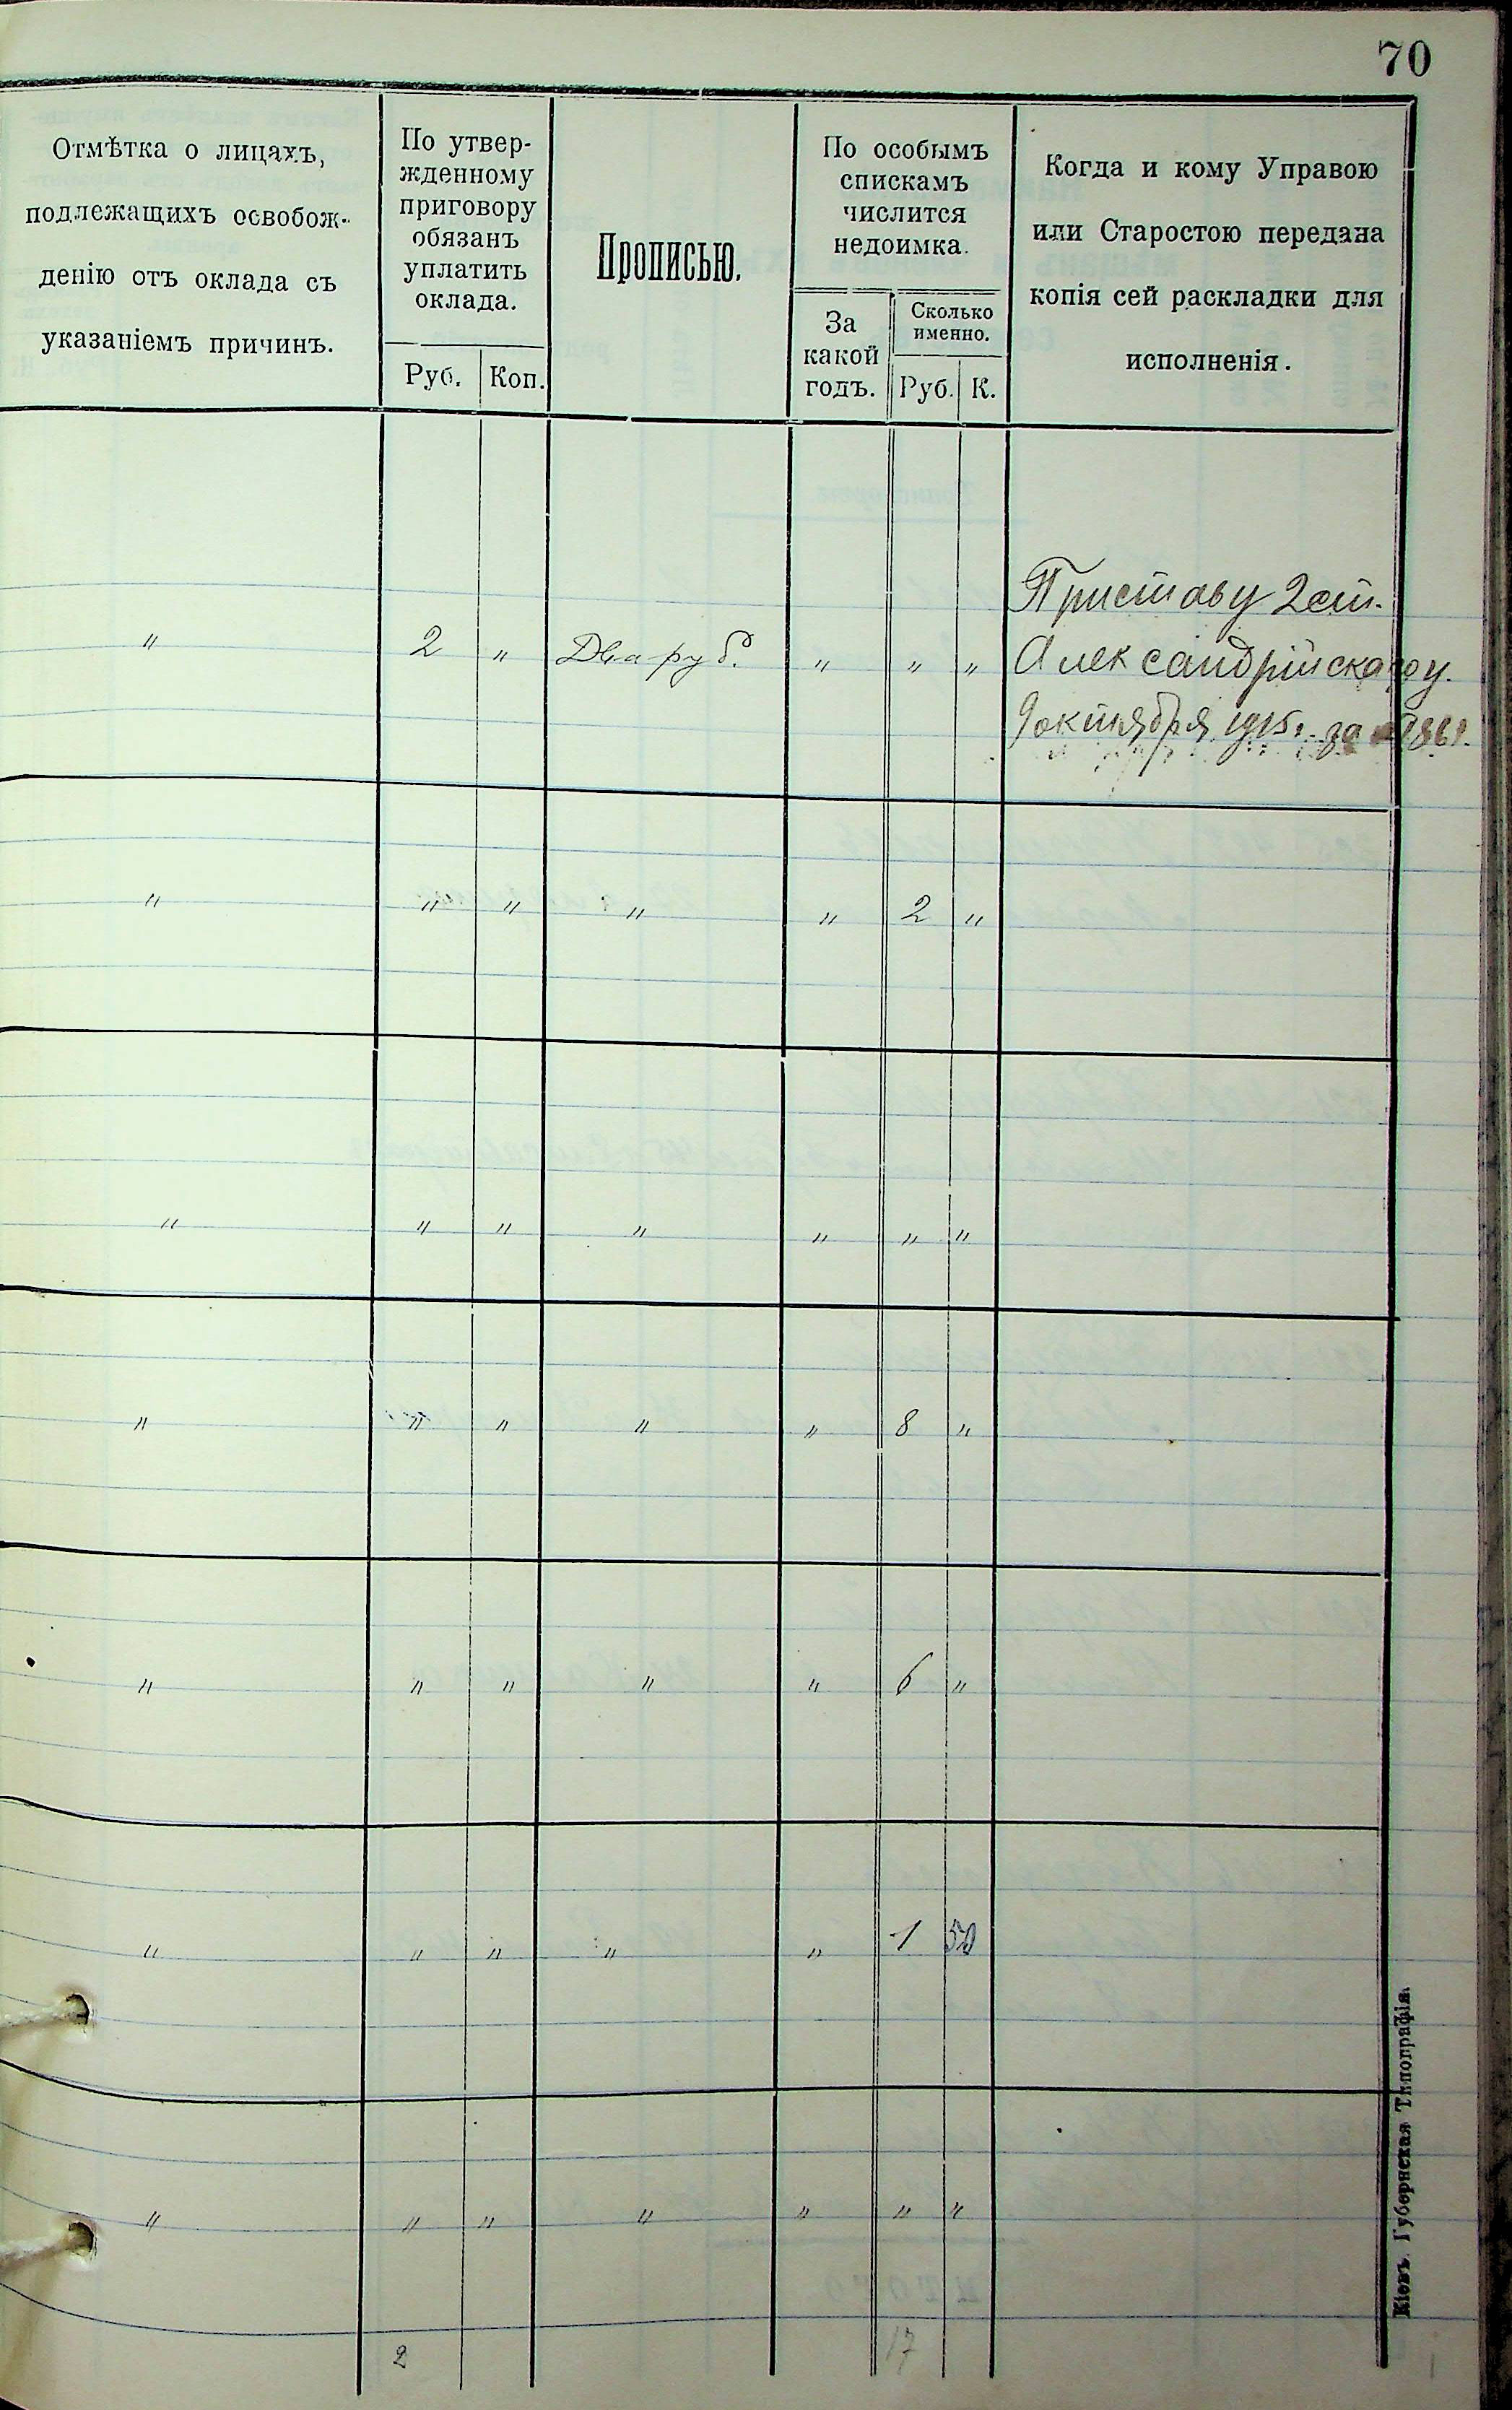 70
Отмѣтка о лицахъ,
подлежащихъ освобож-
денію отъ оклада съ
указаніемъ причинъ.
По утвер-
жденному
приговору
обязанъ
уплатить
оклада.
Руб. Коп.
Прописью.
По особымъ
спискамъ
числится
недоимка.
За
какой
годъ.
Сколько
именно.
Руб. К.
Когда и кому Управою
или Старостою передана
копія сей раскладки для
исполненія.
Приставу 2 ст.
" 2 " Два руб. " " " Александрійскаго у.
9 октября 1915 г. за
" " " " " 2 "
" " " " " " "
" " " " " 8 "
" " " " " 6 "
" " " " " 1 50
" " " " " " "
2 17
Кіевъ. Губернская Типографія.